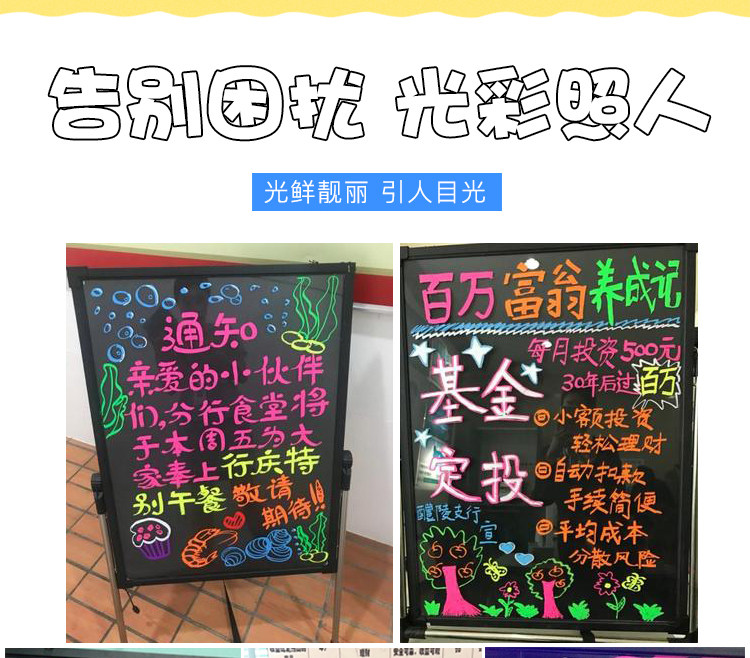 告别困扰 光彩照人
光鲜靓丽 引人目光
通知
亲爱的小伙伴
们,分行食堂将
于本周五为大
家奉上行庆特
别午餐 敬请
期待!!
百万富翁养成记
每月投资500元
30年后过百万
基金
定投
小额投资
轻松理财
自动扣款
手续简便
平均成本
分散风险
醴陵支行
宣